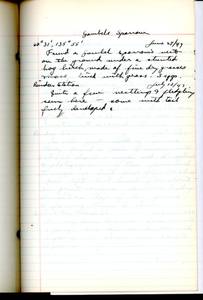 Gambels Sparrow
60° 31', 135° 55' June 25/47
Found a gambel sparrow's nest
on the ground under a stunted
bog birch, made of fine dry grasses
moss lined with grass. 3 eggs.
Station July 10/47
Quite a few nestlings & fledgling
seen here - some with tail
fully developed.